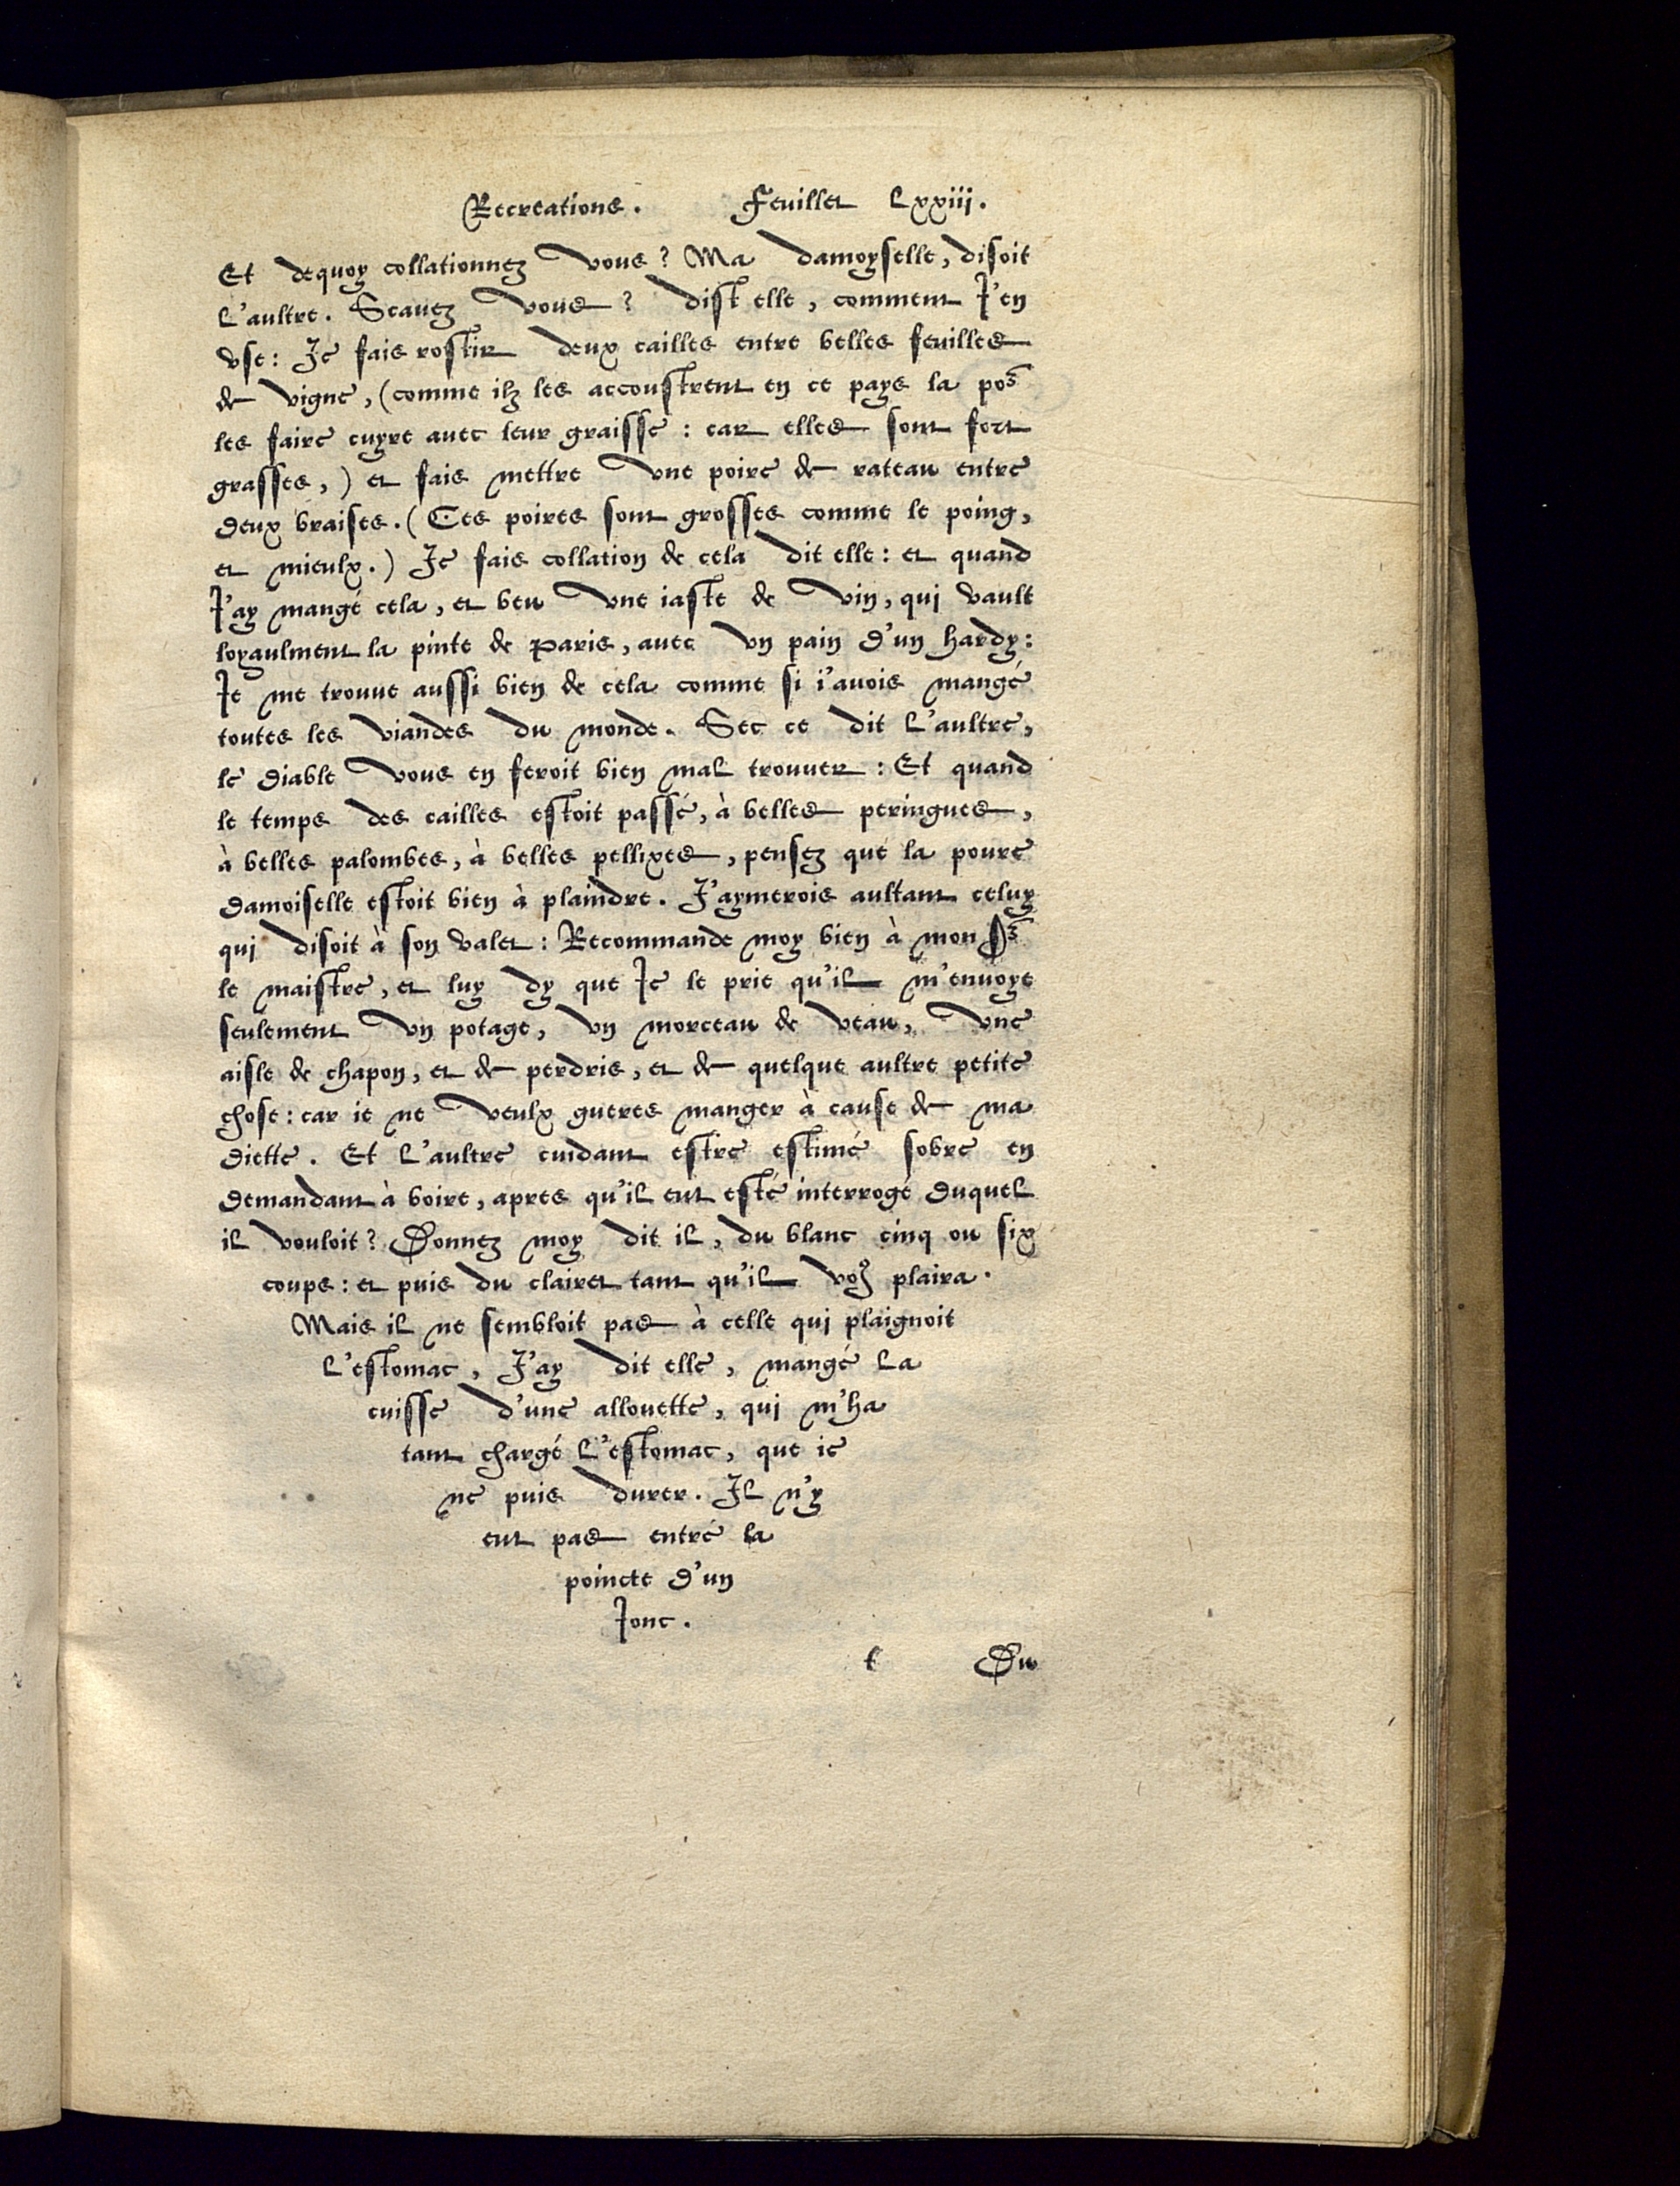 Recreations. Feuillet Lxxiij.
Et dequoy collationnez vous? Ma damoyselle, disoit
L'aultre. Scauez vous? dist elle, comment J'en
vse: Je fais rostir deux cailles entre belles feuilles
de vigne, (comme ilz les accoustrent en ce pays la po͛
les faire cuyre auec leur graisse: car elles sont fort
grasses,) et fais mettre vne poire de rateau entre
deux braises. (Ces poires sont grosses comme le poing,
et mieulx.) Je fais collation de cela dit elle: et quand
J'ay mangé cela, et beu vne iaste de vin, qui vault
loyaulment la pinte de Paris, auec vn pain d'un hardy:
Je me trouue aussi bien de cela comme si i'auois mangé
toutes les viandes du monde. Sec ce dit L'aultre,
le diable vous en feroit bien mal trouuer: Et quand
le temps des cailles estoit passé, à belles peringues,
à belles palombes, à belles pellixes, pensez que la poure
damoiselle estoit bien à plaindre. J'aymerois aultant celuy
qui disoit à son valet: Recommande moy bien à mon S͛
le maistre, et luy dy que Je le prie qu'il m'enuoye
seulement vn potage, vn morceau de veau, vne
aisle de chapon, et de perdris, et de quelque aultre petite
chose: car ie ne veulx gueres manger à cause de ma
diette. Et L'aultre cuidant estre estimé sobre en
demandant à boire, apres qu'il eut esté interrogé duquel
il vouloit? Donnez moy dit il, du blanc cinq ou six
coups: et puis du clairet tant qu'il voꝰ plaira.
Mais il ne sembloit pas à celle qui plaignoit
L'estomac, J'ay dit elle, mangé La
cuisse d'une allouette, qui m'ha
tant chargé L'estomac, que ie
ne puis durer. Il n'y
eut pas entré la
poincte d'un
Jonc.
t Du